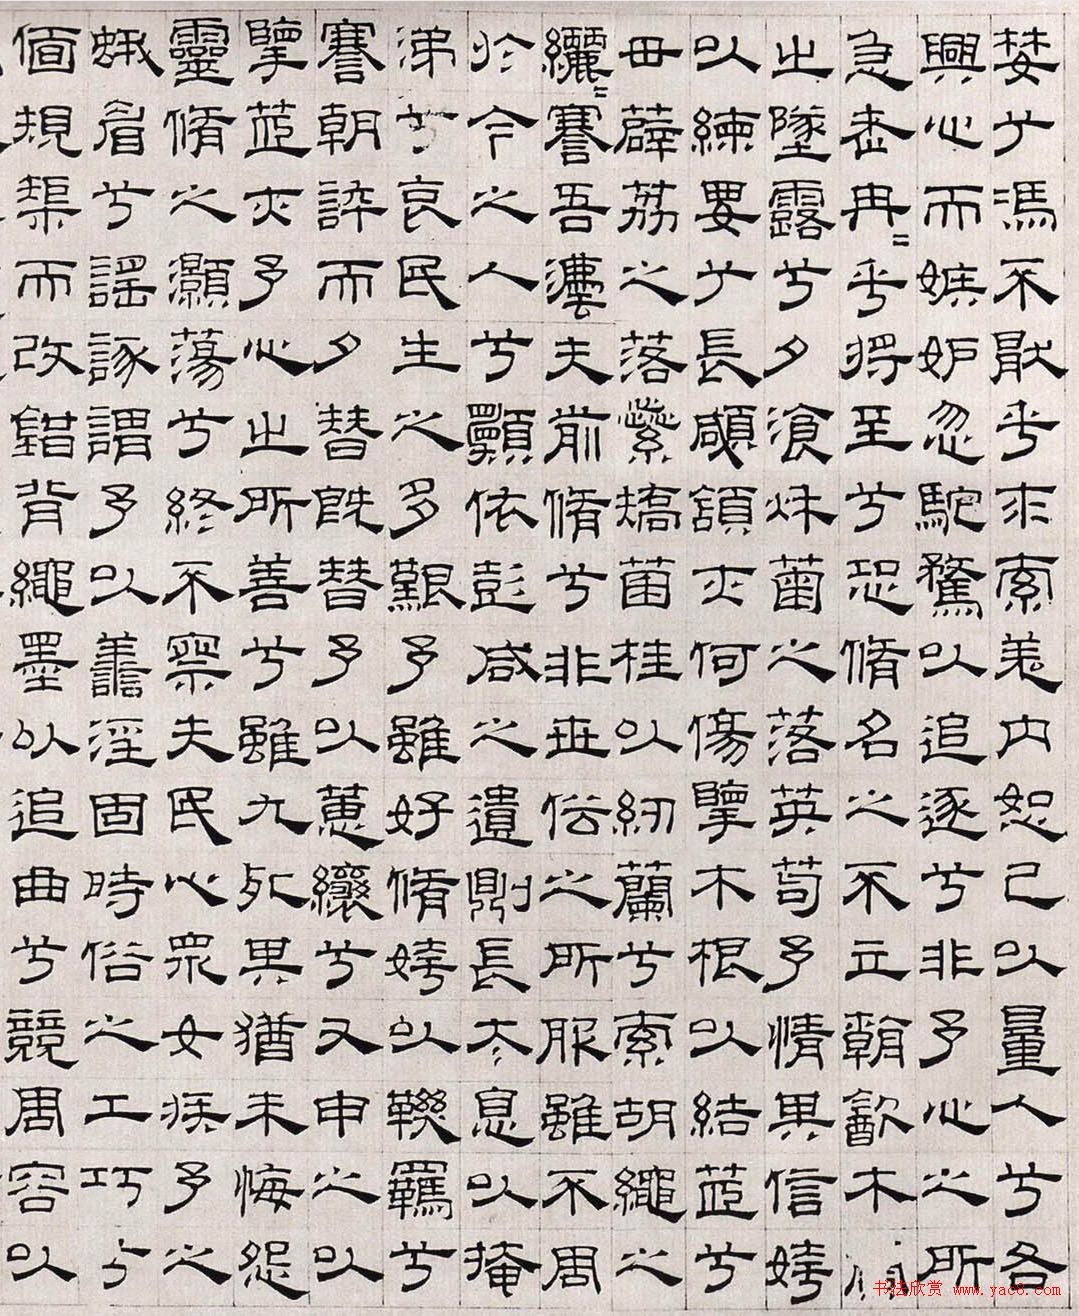 婪兮馮不猒乎求索羌内恕己以量人兮各
興心而嫉妒忽馳騖以追逐兮非予心之所
急老冉=乎將至兮恐脩名之不立朝飲木
之墜露兮夕湌秋菊之落英苟予情其信姱
以練要兮長顑頷亦何傷擥木根以結茝兮
毌薜荔之落蘂矯菌桂以紉蘭兮索胡繩之
纚=謇吾灋夫前脩兮非世俗之所服雖不周
於今之人兮顠依彭咸之遺則長太息以掩
涕兮哀民生之多艱予雖好脩姱以鞿羈兮
謇朝誶而夕替既替予以蕙纕兮又申之以
擥茝亦予心之所善兮雖九死其猶未悔怨
靈脩之灝蕩兮終不察夫民心衆女疾予之
蛾眉兮謠諑謂予以譱淫固時俗之工巧兮
偭規榘而改錯背繩墨以追曲兮競周容以
书法欣赏 www.yac8.com